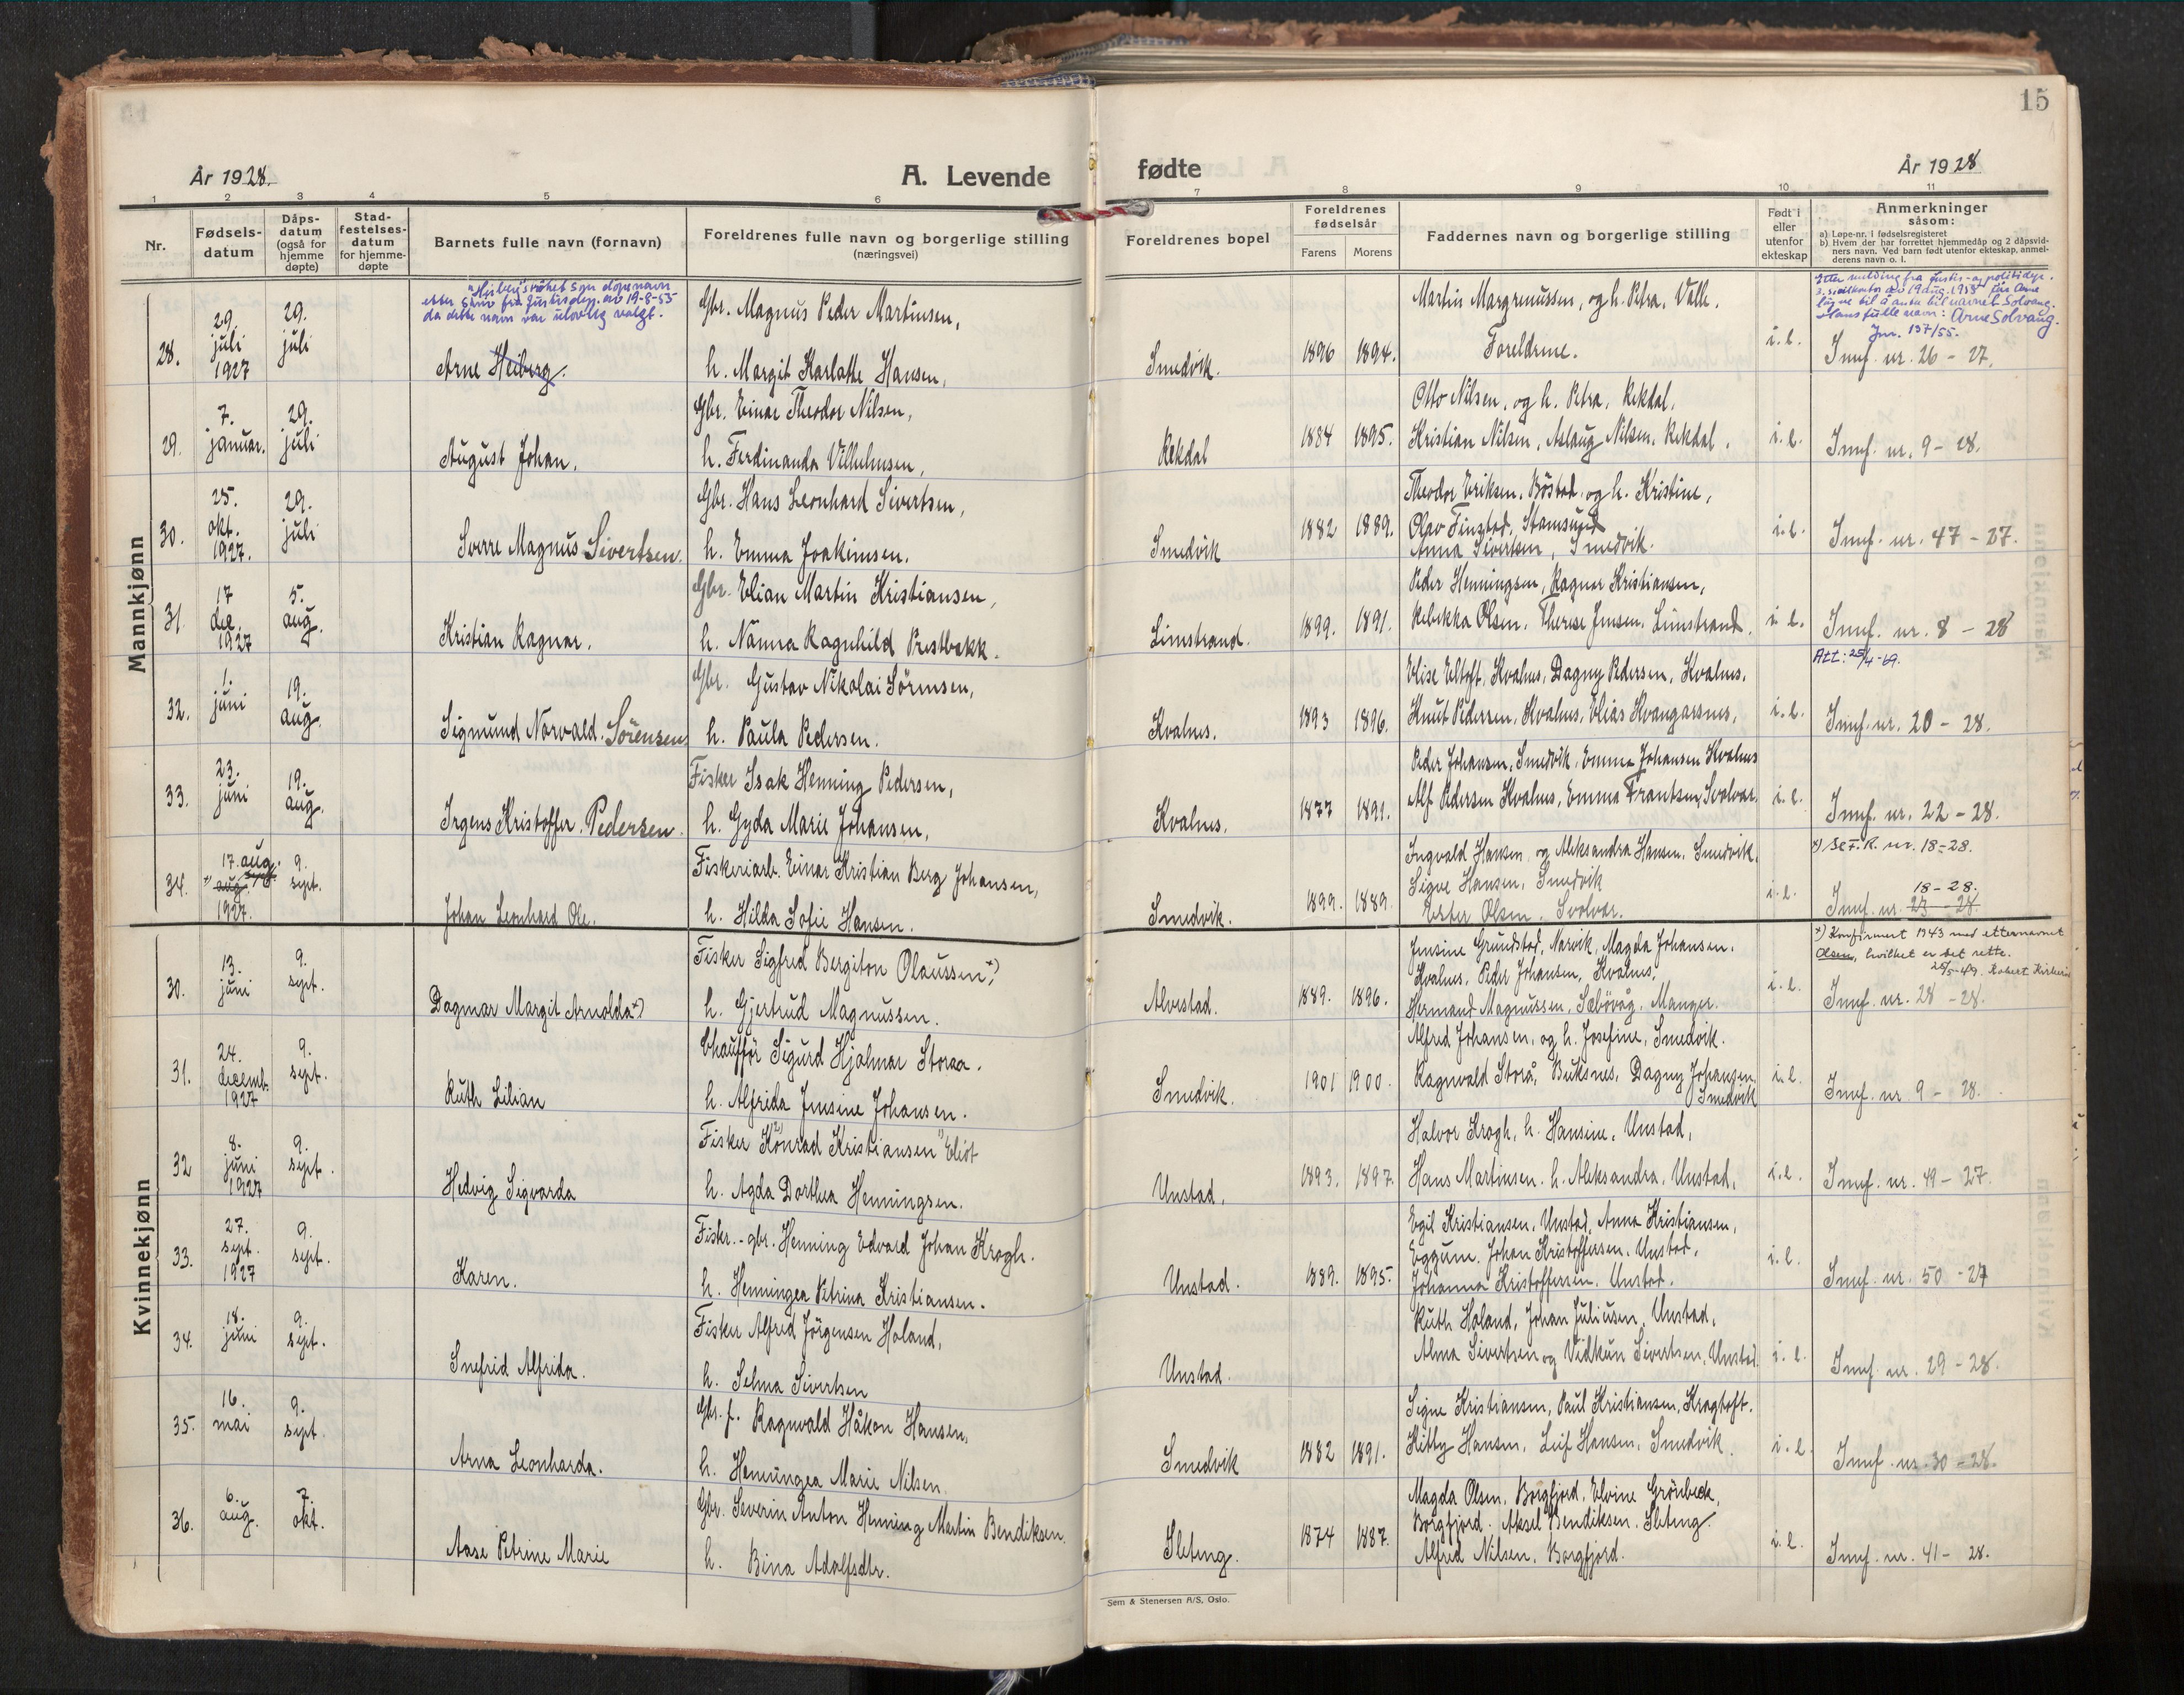 15
År 1928.
A. Levende
fødte
År 1928
1 2 3 4 5 6 7 8 9 10 11
Nr.
Fødsels-
datum
Dåps-
datum
(også for
hjemme
døpte)
Stad-
festelses-
datum
for hjemme-
døpte
Barnets fulle navn (fornavn)
Foreldrenes fulle navn og borgerlige stilling
(næringsvei)
Foreldrenes bopel
Foreldrenes
fødselsår
Farens Morens
Faddernes navn og borgerlige stilling
Født i
eller
utenfor
ekteskap
Anmerkninger
såsom:
a) Løpe-nr. i fødselsregisteret
b) Hvem der har forrettet hjemmedåp og 2 dåpsvid-
ners navn. Ved barn født utenfor ekteskap, anmel-
derens navn o. l.
Mannkjønn
"Heiberg" strøket som døpenavn
etter skriv fra Justisdep. av 19-8-55
da dette navn var ulovlig valgt.
Etter melding fra Justis- og politidep.
av 19 aug. 1955 får Arne
lov til å anta til navnet Solvang.
Hans fulle navn: Arne Solvang.
Jnr. 137/55.
28. 29. juli 1927 29. juli Arne Heiberg.
Gbr. Magnus Peder Martinsen,
h. Margit Karlotte Hansen,
Smedvik. 1896 1894.
Martin Margrenussen, og h. Petra, Valle.
Foreldrene.
i. e. Innf. nr. 26 - 27.
29. 7. januar. 29. juli August Johan.
Gbr. Einar Theodor Nilsen,
h. Ferdinanda Villehmsen,
Rekdal 1884 1895.
Otto Nilsen, og h. Petra, Rekdal.
Kristian Nilsen, Aslaug Nilsen, Rekdal.
i. e. Innf. nr. 9 - 28.
30. 25. okt. 1927. 29. juli Sverre Magnus Sivertsen.
Gbr. Hans Leonhard Sivertsen,
h. Emma Joakimsen.
Smedvik 1882 1889.
Theodor Eriksen, Böstad, og h. Kristine,
Olav Finstad, Stamsund
Anna Sivertsen, Smedvik.
i. e. Innf. nr. 47 - 27.
31. 17 de. 1927 5. aug. Kristian Ragnar.
Gbr. Elian Martin Kristiansen,
h. Nanna Ragnhild Prestbakk.
Limstrand. 1899. 1891.
Peder Henningsen, Ragnar Kristiansen,
Rebekka Olsen, Therese Jensen, Limstrand.
i. e. Innf. nr. 8 - 28
Att: 25/4-69.
32. 1. juni 19. aug. Sigmund Norvald. Sörensen
Gbr. Gustav Nikolai Sörensen,
h. Paula Pedersen.
Kvalnes. 1893 1896.
Elise Eltoft, Kvalnes, Dagny Pedersen, Kvalnes.
Knut Pedersen, Kvalnes, Elias Kvangarsnes,
i. e. Innf. nr. 20 - 28.
33. 23. juni 19. aug. Irgens Kristoffer. Pedersen.
Fisker Isak Henning Pedersen,
h. Gyda Marie Johansen,
Kvalnes. 1877 1891.
Peder Johansen, Smedvik, Emma Johansen Kvalnes
Alf Pedersen Kvalnes, Emma Frantsen, Svolvær.
i. e. Innf. nr. 22 - 28.
34. 17. aug. x) aug. sept. 1927. 9. sept. Johan Leonhard Ole.
Fiskeriarb. Einar Kristian Berg Johansen,
h. Hilda Sofie Hansen.
Smedvik. 1899. 1889.
Ingvald Hansen og Aleksandra Hansen, Smedvik.
Signe Hansen, Smedvik
Ester Olsen. Svolvær.
i. e. x) se F.R. nr. 18-28.
18-28.
Innf. nr. 23 - 28.
Kvinnekjønn
30. 13. juni 9. sept. Dagmar Margit Arnolda x)
Fisker Sigfred Bergiton Olaussen x),
h. Gjertrud Magnussen.
Alvestad. 1889. 1896.
Jensine Grundstad, Narvik, Magda Johansen.
Kvalnes, Peder Johansen, Kvalnes,
Hermand Magnussen, Sæbövåg, Manger.
i. e. x) Konfirmert 1943 med etternavnet
Olsen, hvilket er det rette.
Innf. nr. 28 - 28.
31. 24. decemb. 1927 9. sept. Ruth Lilian
Chauffør Sigurd Hjalmar Storaa.
h. Alfrida Jensine Johansen.
Smedvik. 1901 1900.
Alfred Johansen, og h. Josefine, Smedvik.
Ragnvald Storå, Buksnes, Dagny Johansen.
Smedvik
i. e. Innf. nr 9 - 28.
32 8. juni 1927 9. sept. Hedvig Sigvarda
Fisker Konrad Kristiansen Eliot
h. Agda Dorthea Henningsen.
Unstad. 1893. 1897.
Halvor Krogh, h. Hansine, Unstad,
Hans Martinsen. h. Aleksandra, Unstad,
i. e. Innf. nr. 49 - 27.
33. 27. sept. 1927 9. sept. Karen.
Fiskr.-gbr. Henning Edvard Johan Krogh.
h. Henningea Petrina Kristiansen.
Unstad. 1889. 1895.
Egil Kristiansen, Unstad, Anna Kristiansen,
Eggum. Johan Kristoffersen, Unstad,
Johanna Kristoffersen, Unstad.
i. e. Innf. nr. 50 - 27
34. 18. juni 9. sept. Snefrid Alfrida.
Fisker Alfred Jörgensen Holand,
h. Selma Sivertsen
Unstad.
Ruth Holand, Johan Juliusen, Unstad,
Alma Sivertsen og Vidkun Sivertsen, Unstad.
i. e. Innf. nr. 29 - 28.
35. 16. mai 9. sept. Arna Leonharda.
Gbr. f. Ragnvald Håkon Hansen,
h. Henningea Marie Nilsen.
Smedvik 1882 1891.
Signe Kristiansen, Paul Kristiansen, Kragtoft.
Kitty Hansen, Leif Hansen, Smedvik.
i. e. Innf. nr. 30 - 28.
36. 6. aug. 7. okt. Aase Petrine Marie
Gbr. Severin Anton Henning Martin Bendiksen.
h. Bina Adolfsdtr.
Sleteng. 1874 1887.
Magda Olsen, Borgfjord, Elvine Grönbeck,
Borgfjord. Aksel Bendiksen. Sleteng.
Alfred Nilsen, Borgfjord.
i. e. Innf. nr. 41 - 28.
Sem & Stenersen A/S, Oslo.